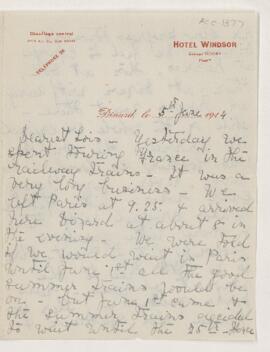 Chauffage central
TÉLÉPHONE 28
HOTEL WINDSOR
Dinard, le 5th June 1914
Dearest Lois - Yesterday we
spent touring France in the
railway trains - It was a
very long business - We
left Paris at 9.25 & arrived
here Dinard at about 8 in
the evening - We were told
if we would wait in Paris
until June 1st all the good
summer trains would be
on - but June 1st came &
the summer trains decided
to wait until the 25th - Here